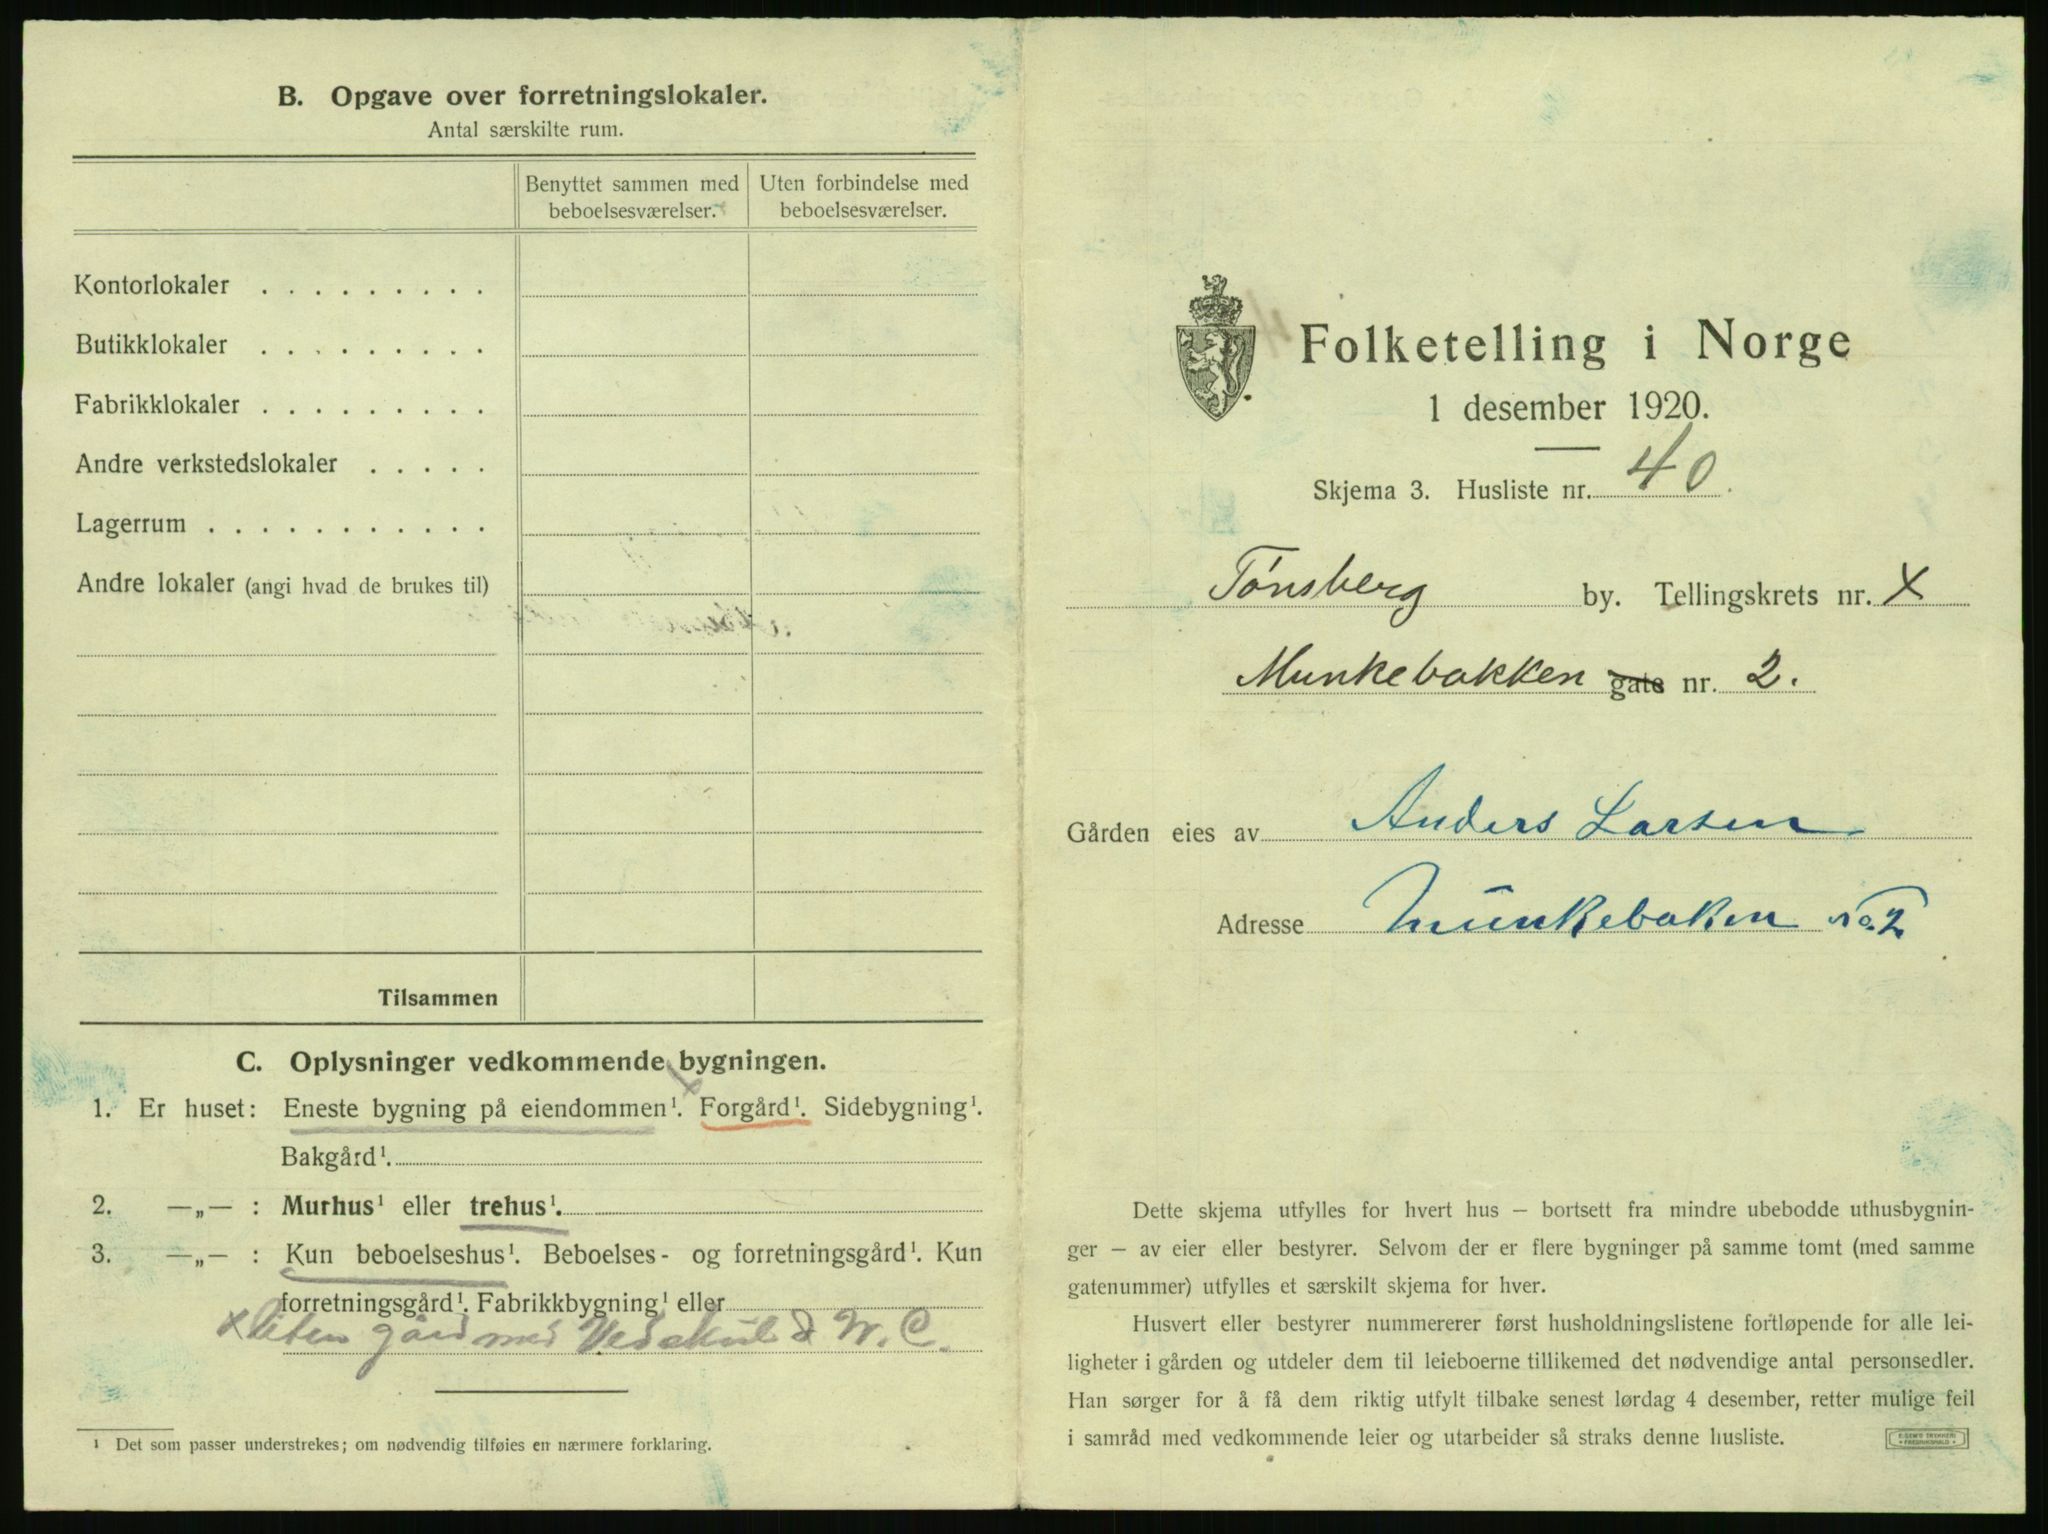 B. Opgave over forretningslokaler.
Antal særskilte rum.
Benyttet sammen med beboelsesværelser.
Uten forbindelse med beboelsesværelser.
Kontorlokaler . . . . . . . . .
Butikklokaler . . . . . . . . .
Fabrikklokaler . . . . . . . . .
Andre verkstedslokaler . . . . .
Lagerrum . . . . . . . . . . .
Andre lokaler (angi hvad de brukes til)
Tilsammen
C. Oplysninger vedkommende bygningen.
1. Er huset: Eneste bygning på eiendommen¹. x Forgård¹. Sidebygning¹.
Bakgård¹.
2. —„— : Murhus¹ eller trehus¹.
3. —„— : Kun beboelseshus¹. Beboelses- og forretningsgård¹. Kun
forretningsgård¹. Fabrikkbygning¹ eller
x Liten gård med Vedskul & W. C.
¹ Det som passer understrekes; om nødvendig tilføies en nærmere forklaring.
Folketelling i Norge
1 desember 1920.
Skjema 3. Husliste nr. 40.
Tønsberg by. Tellingskrets nr. X
Munkebakken gate nr. 2.
Gården eies av Anders Larsen
Adresse Munkebaken No. 2
Dette skjema utfylles for hvert hus – bortsett fra mindre ubebodde uthusbygnin-
ger – av eier eller bestyrer. Selvom der er flere bygninger på samme tomt (med samme
gatenummer) utfylles et særskilt skjema for hver.
Husvert eller bestyrer nummererer først husholdningslistene fortløpende for alle lei-
ligheter i gården og utdeler dem til leieboerne tillikemed det nødvendige antal personsedler.
Han sørger for å få dem riktig utfylt tilbake senest lørdag 4 desember, retter mulige feil
i samråd med vedkommende leier og utarbeider så straks denne husliste.